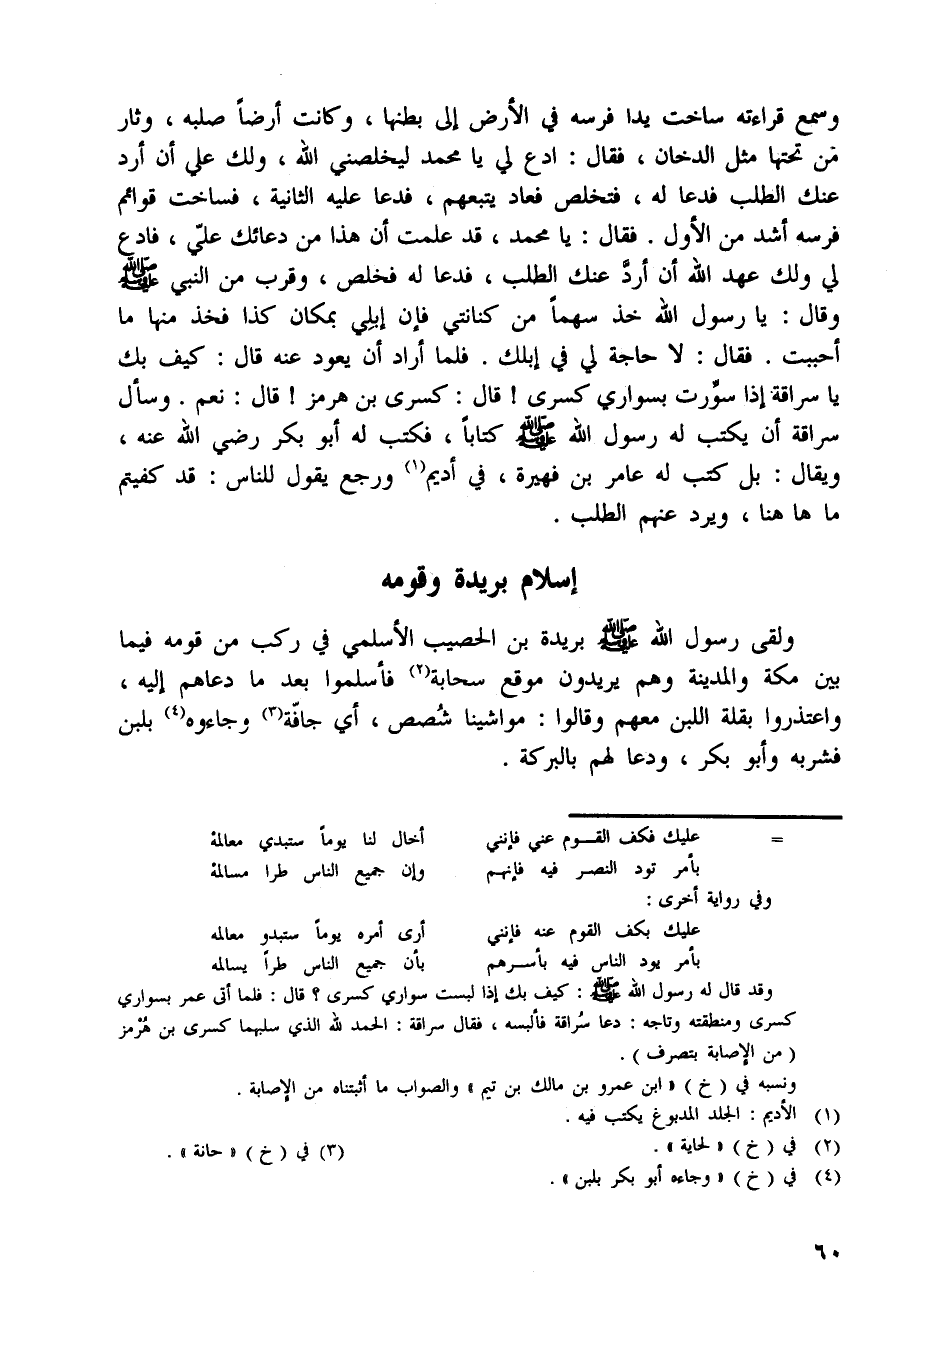 وسمع قراءته ساخت يدا فرسه في الأرض إلى بطنها ، وكانت أرضاً صلبه ، وثار
من تحتها مثل الدخان ، فقال : ادع لي يا محمد ليخلصني الله ، ولك علي أن أرد
عنك الطلب فدعا له ، فتخلص فعاد يتبعهم ، فدعا عليه الثانية ، فساخت قوائم
فرسه أشد من الأول . فقال : يا محمد ، قد علمت أن هذا من دعائك عليّ ، فادع
لي ولك عهد الله أن أردَّ عنك الطلب ، فدعا له فخلص ، وقرب من النبي ﷺ
وقال : يا رسول الله خذ سهماً من كنانتي فإن إبلي بمكان كذا فخذ منها ما
أحببت . فقال : لا حاجة لي في إبلك . فلما أراد أن يعود عنه قال : كيف بك
يا سراقة إذا سوِّرت بسواري كسرى ! قال : كسرى بن هرمز ! قال : نعم . وسأل
سراقة أن يكتب له رسول الله ﷺ كتاباً ، فكتب له أبو بكر رضي الله عنه ،
ويقال : بل كتب له عامر بن فهيرة ، في أديم(١) ورجع يقول للناس : قد كفيتم
ما ها هنا ، ويرد عنهم الطلب .
إسلام بريدة وقومه
ولقى رسول الله ﷺ بريدة بن الحصيب الأسلمي في ركب من قومه فيما
بين مكة والمدينة وهم يريدون موقع سحابة(٢) فأسلموا بعد ما دعاهم إليه ،
واعتذروا بقلة اللبن معهم وقالوا : مواشينا شُصص ، أي جافّة(٣) وجاءوه(٤) بلبن
فشربه وأبو بكر ، ودعا لهم بالبركة .
= عليك فكف القـوم عني فإنني أخال لنا يوماً ستبدي معالمهْ
بأمر تود النصر فيه فإنهم وإن جميع الناس طرا مسالمهْ
وفي رواية أخرى :
عليك بكف القوم عنه فإنني أرى أمره يوماً ستبدو معالمه
بأمر يود الناس فيه بأسرهم بأن جميع الناس طراً يسالمه
وقد قال له رسول الله ﷺ : كيف بك إذا لبست سواري كسرى ؟ قال : فلما أتى عمر بسواري
كسرى ومنطقته وتاجه : دعا سُراقة فألبسه ، فقال سراقة : الحمد لله الذي سلبهما كسرى بن هُرْمز
( من الإصابة بتصرف ) .
ونسبه في ( خ ) « ابن عمرو بن مالك بن تيم » والصواب ما أثبتناه من الإصابة .
(١) الأديم : الجلد المدبوغ يكتب فيه .
(٢) في ( خ ) « لحاية » . (٣) في ( خ ) « حانة » .
(٤) في ( خ ) « وجاءه أبو بكر بلبن » .
٦٠